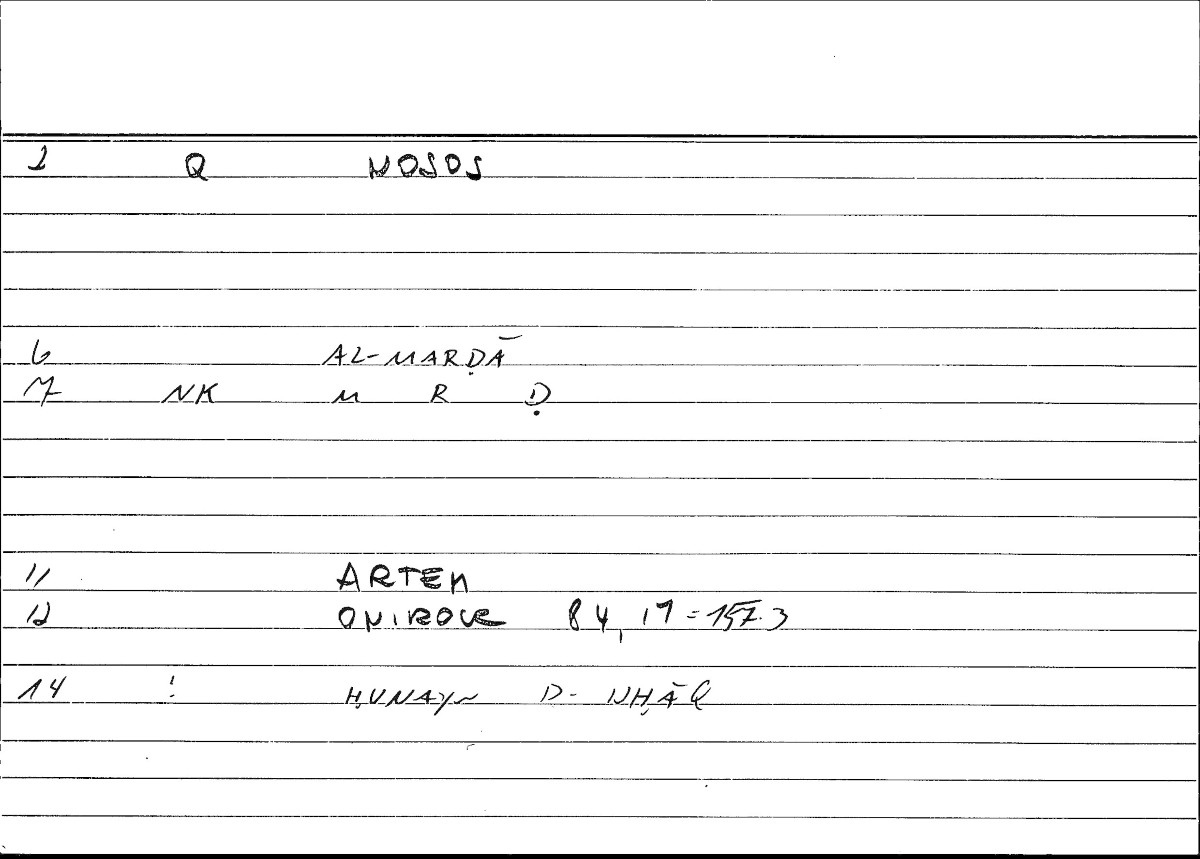 2 Q NOSOS
6 AL-MARḌĀ
7 NK M R Ḍ
11 ARTEM
12 ONIROCR 84,17=157.3
14 : ḤUNAYN D- NḤĀQ